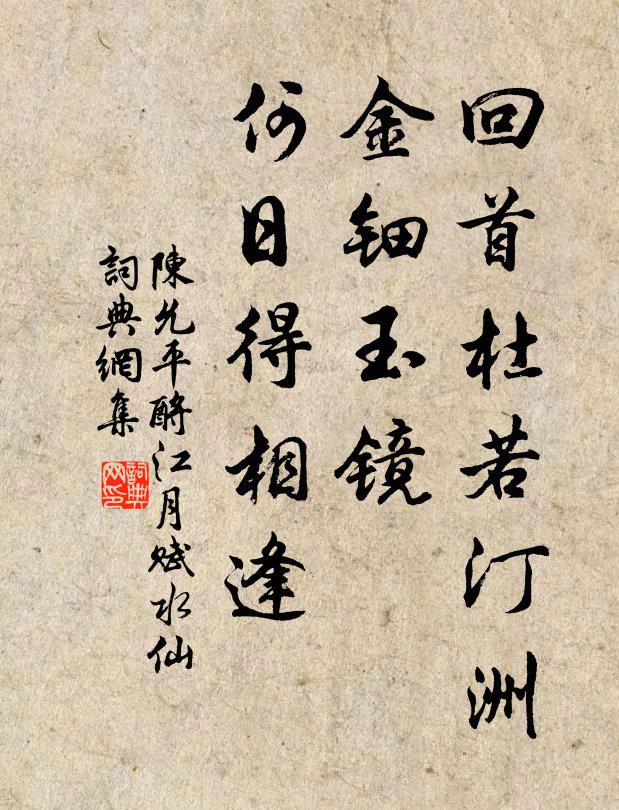 回首杜若汀洲
金钿玉镜
何日得相逢
陳允平酹江月赋水仙
詞典網集
詞典网印